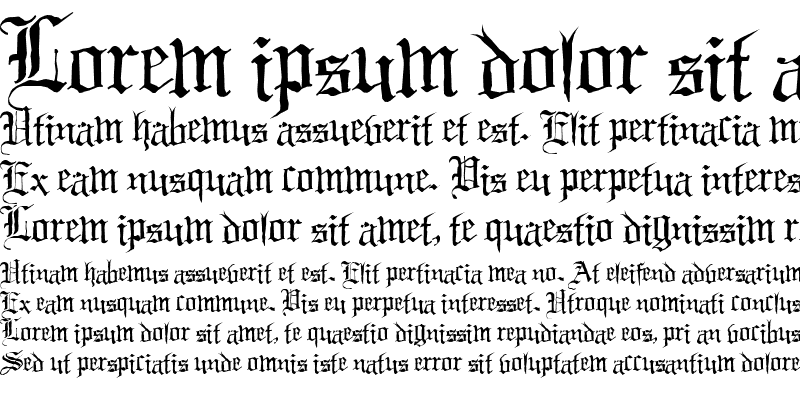 Lorem ipsum dolor sit a
Utinam habemus assueverit et est. Elit pertinacia m
Ex eam nusquam commune. Vis eu perpetua interes
Lorem ipsum dolor sit amet, te quaestio dignissim r
Utinam habemus assueverit et est. Elit pertinacia mea no. At eleifend adversarium
Ex eam nusquam commune. Vis eu perpetua interesset. Utroque nominati conclus
Lorem ipsum dolor sit amet, te quaestio dignissim repudiandae eos, pri an vocibus
Sed ut perspiciatis unde omnis iste natus error sit voluptatem accusantium dolore